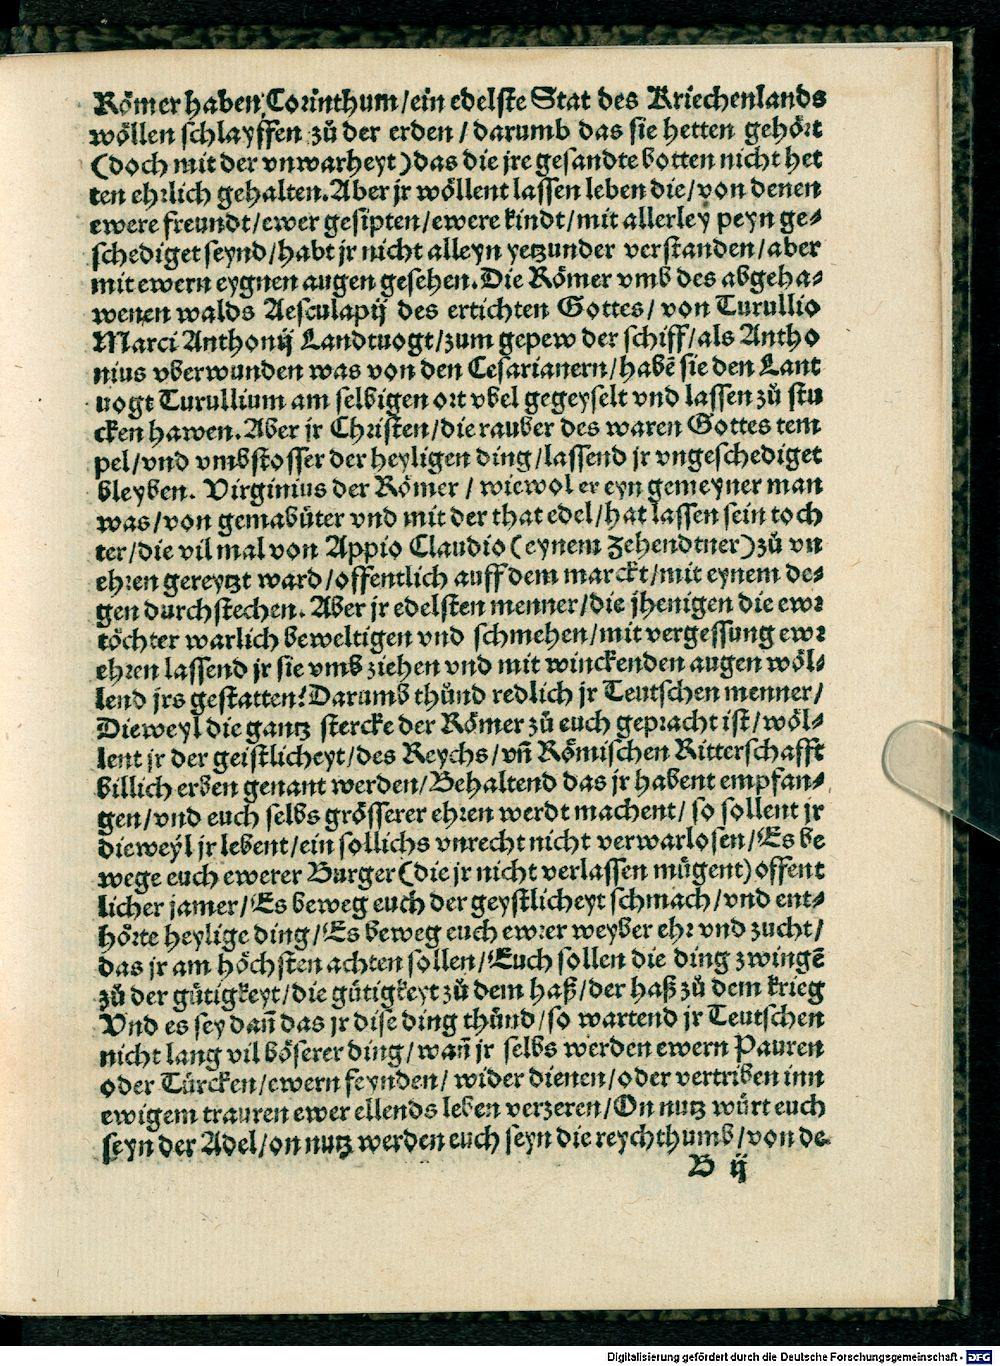 Römer haben Corinthum/ein edelste Stat des Kriechenlands
wöllen schlayffen zů der erden/darumb das sie hetten gehört
(doch mit der vnwarheyt) das die jre gesandte botten nicht het
ten ehrlich gehalten. Aber jr wöllent lassen leben die/von denen
ewere freundt/ewer gesipten/ewere kindt/mit allerley peyn ge⸗
schediget seynd/habt jr nicht alleyn yetzunder verstanden/aber
mit ewern eygnen augen gesehen. Die Römer vmb des abgeha⸗
wenen walds Aesculapij des ertichten Gottes/von Turullio
Marci Anthonij Landtuogt/zum gepew der schiff/als Antho
nius vberwunden was von den Cesarianern/habē sie den Lant
uogt Turullium am selbigen ort vbel gegeyselt vnd lassen zů stu
cken hawen. Aber jr Christen/die rauber des waren Gottes tem
pel/vnd vmbstosser der heyligen ding/lassend jr vngeschediget
bleyben. Virginius der Römer/wiewol er eyn gemeyner man
was/von gemabüter vnd mit der that edel/hat lassen sein toch
ter/die vil mal von Appio Claudio (eynem Zehendtner) zů vn
ehren gereytzt ward/offentlich auff dem marckt/mit eynem de⸗
gen durchstechen. Aber jr edelsten menner/die jhenigen die ewr
töchter warlich beweltigen vnd schmehen/mit vergessung ewr
ehren lassend jr sie vmb ziehen vnd mit winckenden augen wöl⸗
lend jrs gestatten? Darumb thůnd redlich jr Teutschen menner/
Dieweyl die gantz stercke der Römer zů euch gepracht ist/wöl⸗
lent jr der geistlicheyt/des Reychs/vn̄ Römischen Ritterschafft
billich erben genant werden/Behaltend das jr habent empfan⸗
gen/vnd euch selbs grösserer ehren werdt machent/so sollent jr
dieweyl jr lebent/ein sollichs vnrecht nicht verwarlosen/Es be
wege euch ewerer Burger (die jr nicht verlassen mügent) offent
licher jamer/Es beweg euch der geystlicheyt schmach/vnd ent⸗
hörte heylige ding/Es beweg euch ewrer weyber ehr vnd zucht/
das jr am höchsten achten sollen/Euch sollen die ding zwingē
zů der gütigkeyt/die gütigkeyt zů dem haß/der haß zů dem krieg
Vnd es sey dan̄ das jr dise ding thůnd/so wartend jr Teutschen
nicht lang vil böserer ding/wan̄ jr selbs werden ewern Pauren
oder Türcken/ewern feynden/wider dienen/oder vertriben inn
ewigem trauren ewer ellends leben verzeren/On nutz würt euch
seyn der Adel/on nutz werden euch seyn die reychthumb/von de⸗
B ij
Digitalisierung gefördert durch die Deutsche Forschungsgemeinschaft - DFG